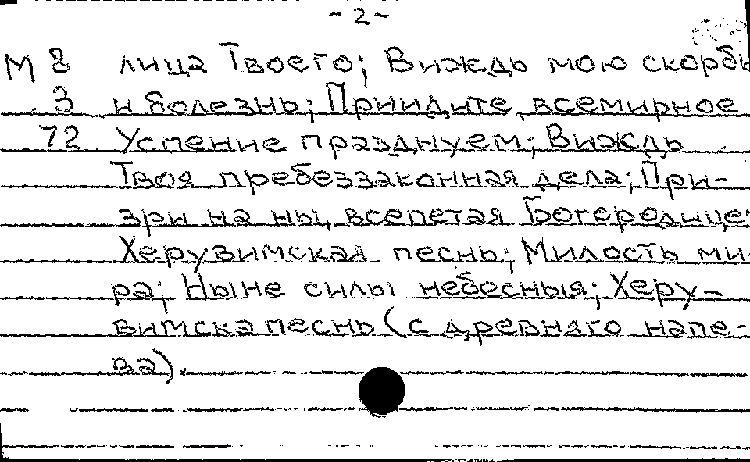 -2-
М 8 лица Твоего; Виждь мою скорбь
3 и болезнь; Приидите, всемирное
72 Успение празднуем; Виждь
Твоя пребеззаконная дела; При-
зри на ны, всепетая Богородице;
Херувимская песнь; Милость ми-
ра; Ныне силы небесныя; Херу-
вимска песнь (с древняго напе-
ва).